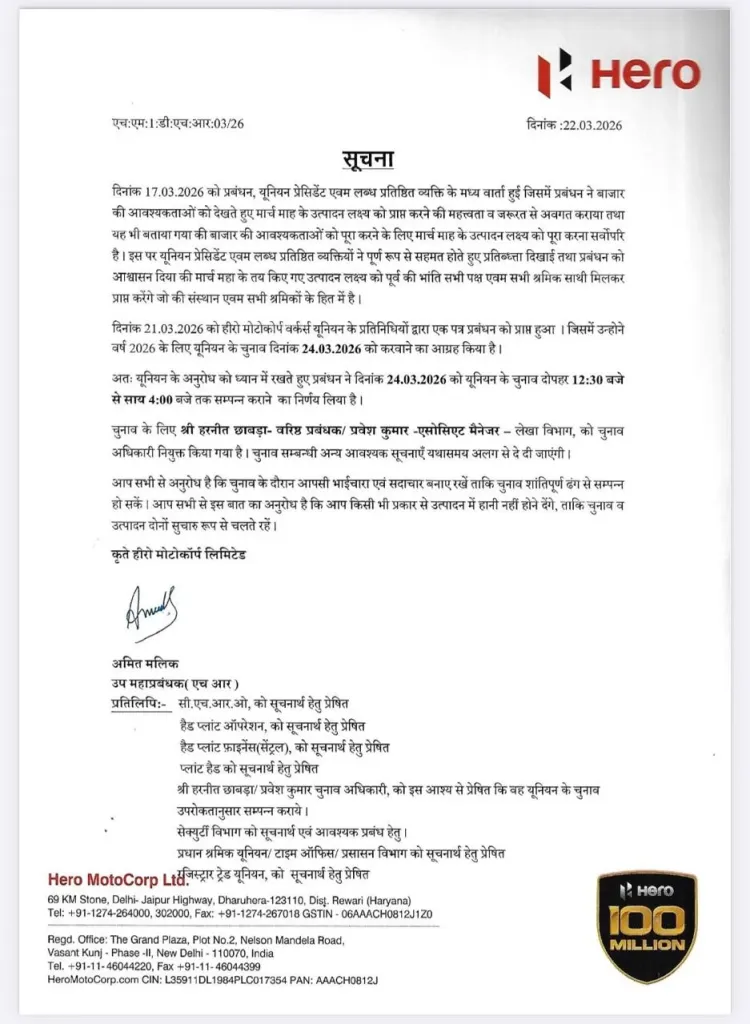 Hero
एच:एम:1:डी:एच:आर:03/26
दिनांक :22.03.2026
सूचना
दिनांक 17.03.2026 को प्रबंधन, यूनियन प्रेसिडेंट एवम लब्ध प्रतिष्ठित व्यक्ति के मध्य वार्ता हुई जिसमें प्रबंधन ने बाजार
की आवश्यकताओं को देखते हुए मार्च माह के उत्पादन लक्ष्य को प्राप्त करने की महत्त्वता व जरूरत से अवगत कराया तथा
यह भी बताया गया की बाजार की आवश्यकताओं को पूरा करने के लिए मार्च माह के उत्पादन लक्ष्य को पूरा करना सर्वोपरि
है। इस पर यूनियन प्रेसिडेंट एवम लब्ध प्रतिष्ठित व्यक्तियों ने पूर्ण रूप से सहमत होते हुए प्रतिब्ध्ता दिखाई तथा प्रबंधन को
आश्वासन दिया की मार्च महा के तय किए गए उत्पादन लक्ष्य को पूर्व की भांति सभी पक्ष एवम सभी श्रमिक साथी मिलकर
प्राप्त करेंगे जो की संस्थान एवम सभी श्रमिकों के हित में है।
दिनांक 21.03.2026 को हीरो मोटोकोर्प वर्कर्स यूनियन के प्रतिनिधियों द्वारा एक पत्र प्रबंधन को प्राप्त हुआ । जिसमें उन्होने
वर्ष 2026 के लिए यूनियन के चुनाव दिनांक 24.03.2026 को करवाने का आग्रह किया है।
अतः यूनियन के अनुरोध को ध्यान में रखते हुए प्रबंधन ने दिनांक 24.03.2026 को यूनियन के चुनाव दोपहर 12:30 बजे
से साय 4:00 बजे तक सम्पन कराने का निर्णय लिया है।
चुनाव के लिए श्री हरनीत छाबड़ा- वरिष्ठ प्रबंधक/ प्रवेश कुमार -एसोसिएट मैनेजर – लेखा विभाग, को चुनाव
अधिकारी नियुक्त किया गया है। चुनाव सम्बन्धी अन्य आवश्यक सूचनाएँ यथासमय अलग से दे दी जाएंगी।
आप सभी से अनुरोध है कि चुनाव के दौरान आपसी भाईचारा एवं सदाचार बनाए रखें ताकि चुनाव शांतिपूर्ण ढंग से सम्पन
हो सकें। आप सभी से इस बात का अनुरोध है कि आप किसी भी प्रकार से उत्पादन में हानी नहीं होने देंगे, ताकि चुनाव व
उत्पादन दोनों सुचारु रूप से चलते रहें।
कृते हीरो मोटोकॉर्प लिमिटेड
अमित मलिक
उप महाप्रबंधक( एच आर )
प्रतिलिपि:- सी.एच.आर.ओ, को सूचनार्थ हेतु प्रेषित
हैड प्लांट ऑपरेशन, को सूचनार्थ हेतु प्रेषित
हैड प्लांट फ़ाइनेंस(सेंट्रल), को सूचनार्थ हेतु प्रेषित
प्लांट हैड को सूचनार्थ हेतु प्रेषित
श्री हरनीत छाबड़ा/ प्रवेश कुमार चुनाव अधिकारी, को इस आश्य से प्रेषित कि वह यूनियन के चुनाव
उपरोकतानुसार सम्पन कराये।
सेक्युर्टी विभाग को सूचनार्थ एवं आवश्यक प्रबंध हेतु।
प्रधान श्रमिक यूनियन/ टाइम ऑफिस/ प्रसासन विभाग को सूचनार्थ हेतु प्रेषित
रजिस्ट्रार ट्रेड यूनियन, को सूचनार्थ हेतु प्रेषित
Hero MotoCorp Ltd.
69 KM Stone, Delhi- Jaipur Highway, Dharuhera-123110, Dist. Rewari (Haryana)
Tel: +91-1274-264000, 302000, Fax: +91-1274-267018 GSTIN - 06AAACH0812J1Z0
Regd. Office: The Grand Plaza, Plot No.2, Nelson Mandela Road,
Vasant Kunj - Phase -II, New Delhi - 110070, India
Tel. +91-11- 46044220, Fax +91-11- 46044399
HeroMotoCorp.com CIN: L35911DL1984PLC017354 PAN: AAACH0812J
Hero
100
MILLION